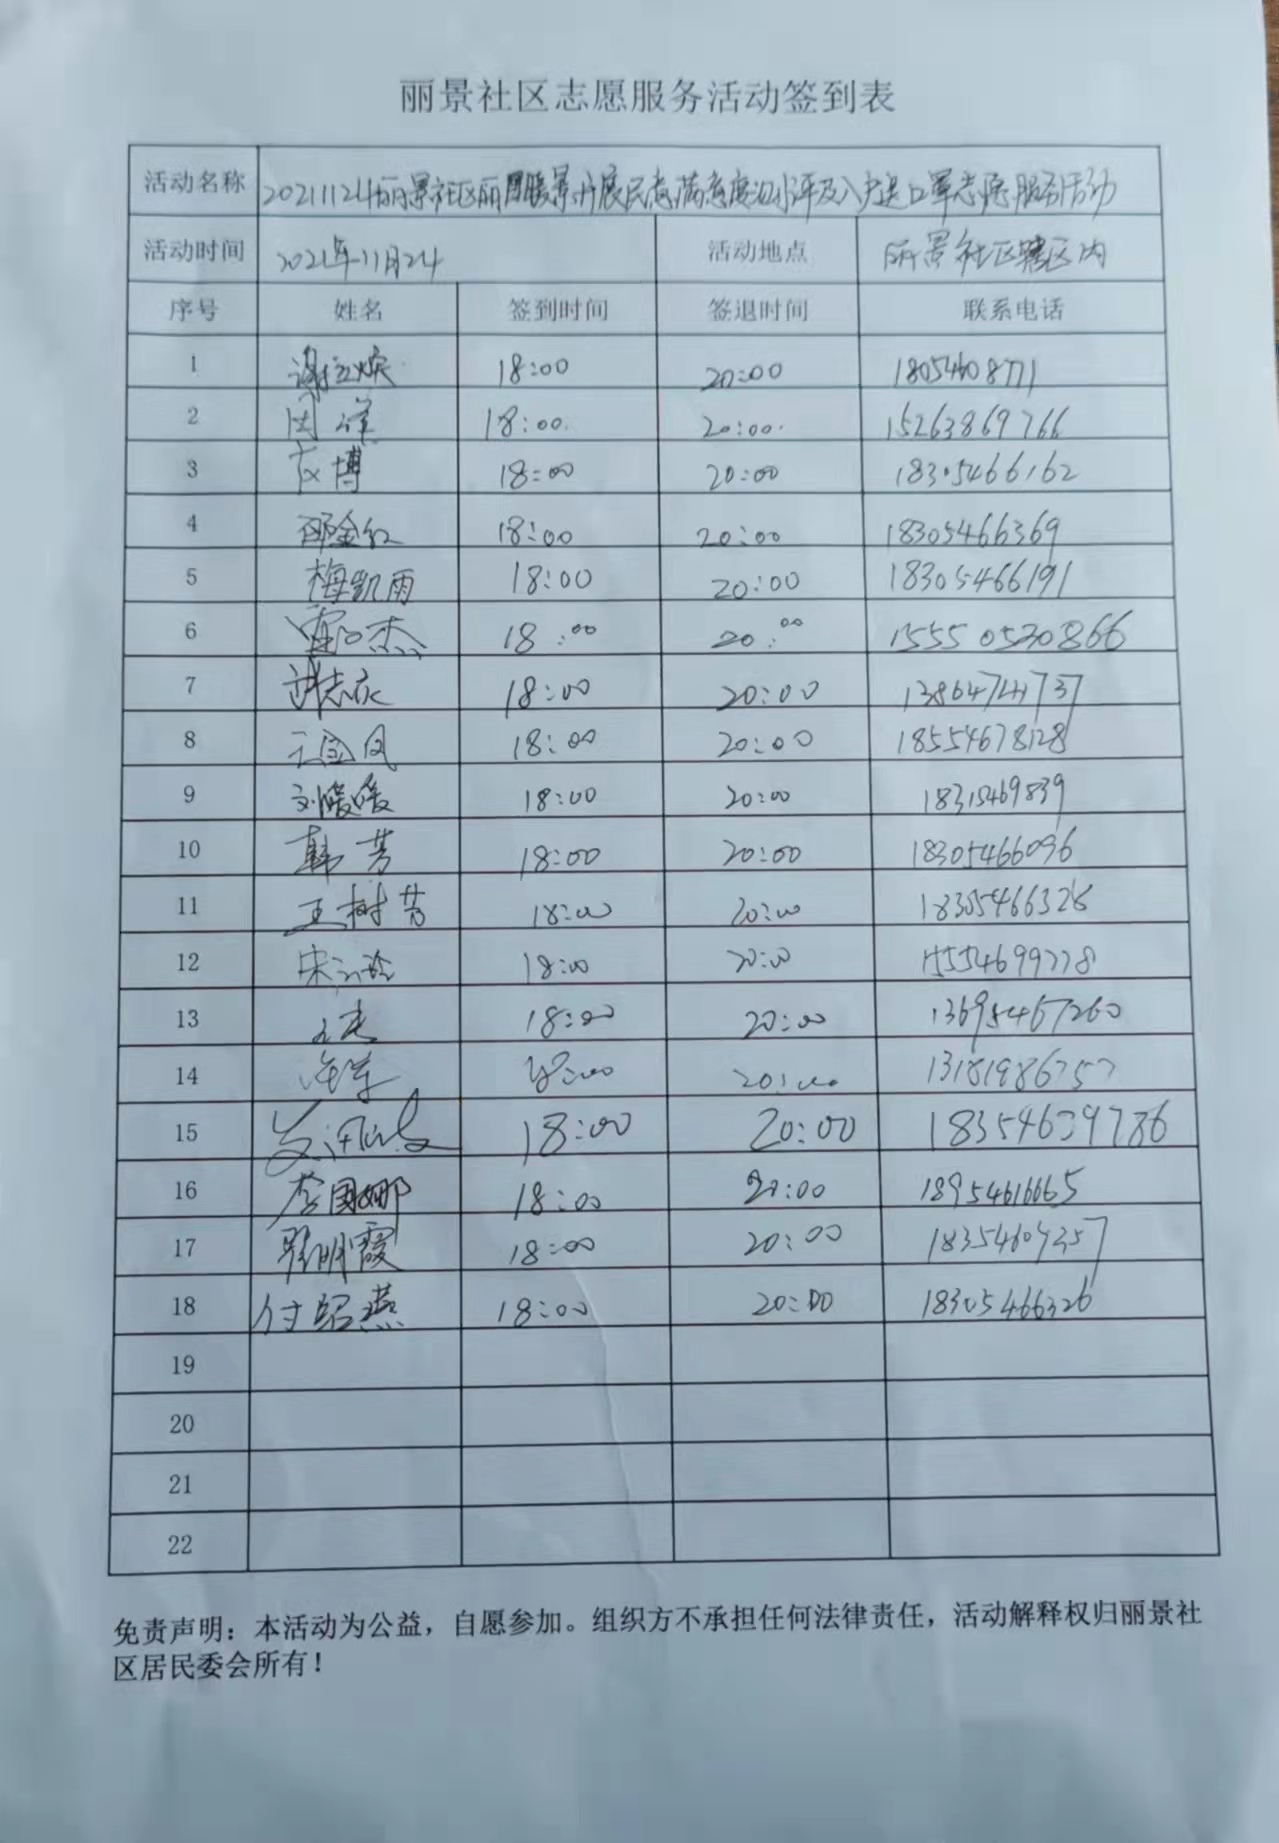 丽景社区志愿服务活动签到表
活动名称 20211124丽景社区丽 暖景开展民意满意度测评及入户送口罩志愿服务活动
活动时间 2021年11月24 活动地点 丽景社区辖区内
序号 姓名 签到时间 签退时间 联系电话
1 18:00 20:00
2 18:00. 20:00. 15263869766
3 博 18:00 20:00 18305466162
4 邵金红 18:00 20:00 18305466369
5 梅凯雨 18:00 20:00 18305466191
6 18:00 20:00
7 18:00 20:00
8 18:00 20:00 18554678128
9 刘暖暖 18:00 20:00 18315469839
10 韩芳 18:00 20:00 18305466096
11 王树芳 18:00 20:00 18305466328
12 宋 玲 18:00 20:00 15554699778
13 18:00 20:00 13695467260
14 18:00 20:00
15 18:00 20:00 18354639786
16 李国娜 18:00 20:00 18954616665
17 翟明霞 18:00 20:00
18 付绍燕 18:00 20:00 18305466326
19
20
21
22
免责声明：本活动为公益，自愿参加。组织方不承担任何法律责任，活动解释权归丽景社
区居民委会所有！